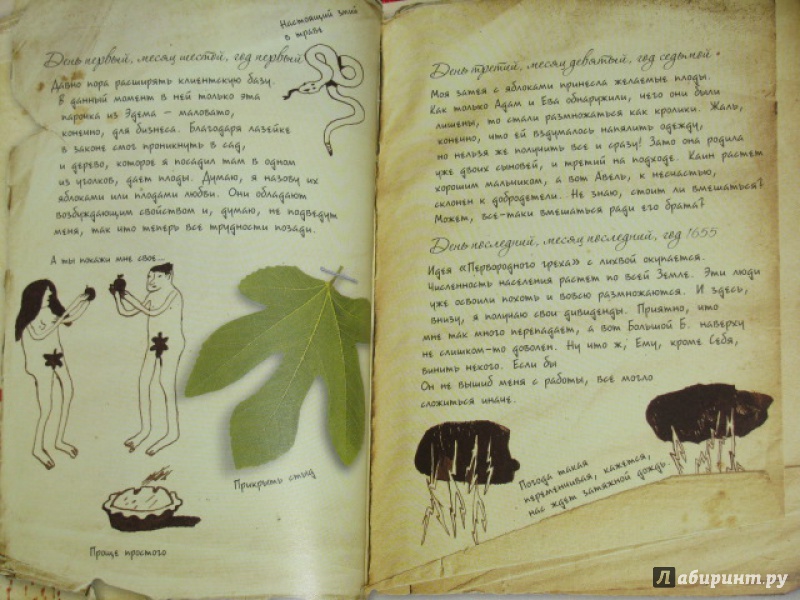 Настоящий змий
в траве
День первый, месяц шестой, год первый
Давно пора расширять клиентскую базу.
В данный момент в ней только эта
парочка из Эдема – маловато,
конечно, для бизнеса. Благодаря лазейке
в законе смог проникнуть в сад,
и дерево, которое я посадил там в одном
из уголков, дает плоды. Думаю, я назову их
яблоками или плодами любви. Они обладают
возбуждающим свойством и, думаю, не подведут
меня, так что теперь все трудности позади.
А ты покажи мне свое...
Прикрыть стыд
Проще простого
День третий, месяц девятый, год седьмой
Моя затея с яблоками принесла желаемые плоды.
Как только Адам и Ева обнаружили, чего они были
лишены, то стали размножаться как кролики. Жаль,
конечно, что ей вздумалось напялить одежду,
но нельзя же получить все и сразу! Зато она родила
уже двоих сыновей, и третий на подходе. Каин растет
хорошим мальчиком, а вот Авель, к несчастью,
склонен к добродетели. Не знаю, стоит ли вмешаться?
Может, все-таки вмешаться ради его брата?
День последний, месяц последний, год 1655
Идея «Первородного греха» с лихвой окупается.
Численность населения растет по всей Земле. Эти люди
уже освоили похоть и вовсю размножаются. И здесь,
внизу, я получаю свои дивиденды. Приятно, что
мне так много перепадает, а вот Большой Б. наверху
не слишком-то доволен. Ну что ж, Ему, кроме Себя,
винить некого. Если бы
Он не вышиб меня с работы, все могло
сложиться иначе.
Погода такая
переменчивая, кажется,
нас ждет затяжной дождь.
Лабиринт.ру